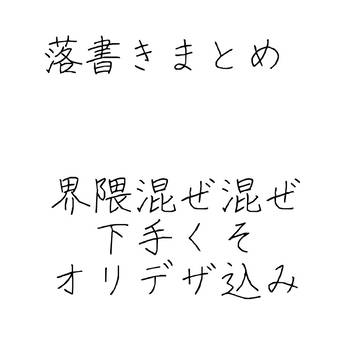 落書きまとめ
界隈混ぜ混ぜ
下手くそ
オリデザ込み